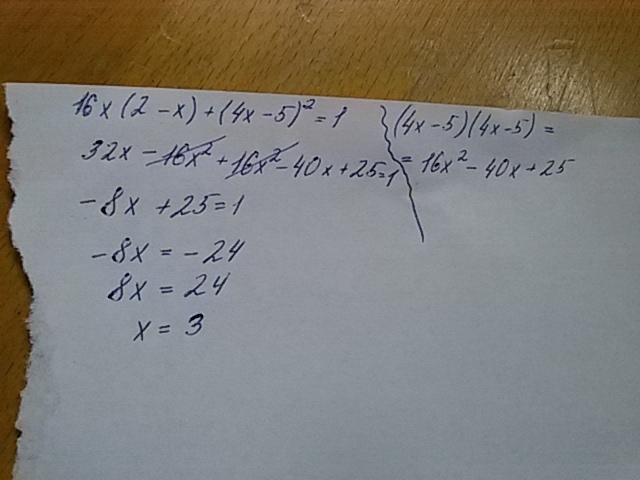 16x(2-x)+(4x-5)²=1
32x-16x²+16x²-40x+25=1
-8x+25=1
-8x=-24
8x=24
x=3
(4x-5)(4x-5)=
=16x²-40x+25